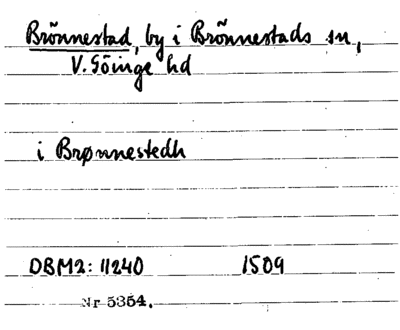 Brönnestad, by i Brönnestads sn,
V. Göinge hd
i Brønnestedh
DBM2: 11240 1509
Nr 5354.